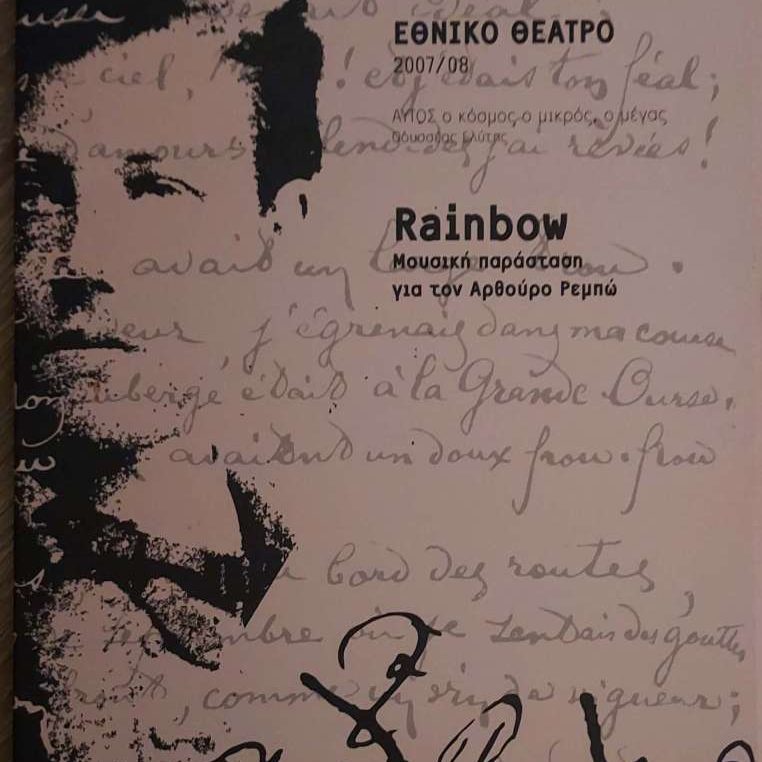 ΕΘΝΙΚΟ ΘΕΑΤΡΟ
2007/08
ΑΥΤΟΣ ο κόσμος ο μικρός, ο μέγας
Οδυσσέας Ελύτης
Rainbow
Μουσική παράσταση
για τον Αρθούρο Ρεμπώ
ideal
ciel, ! et j'étais ton féal;
d'amours splendides j'ai rêvées!
avait un large trou.
j'égrenais dans ma course
auberge était à la Grande-Ourse,
avaient un doux frou-frou
bord des routes,
septembre où je sentais des gouttes
front, comme un vin de vigueur;